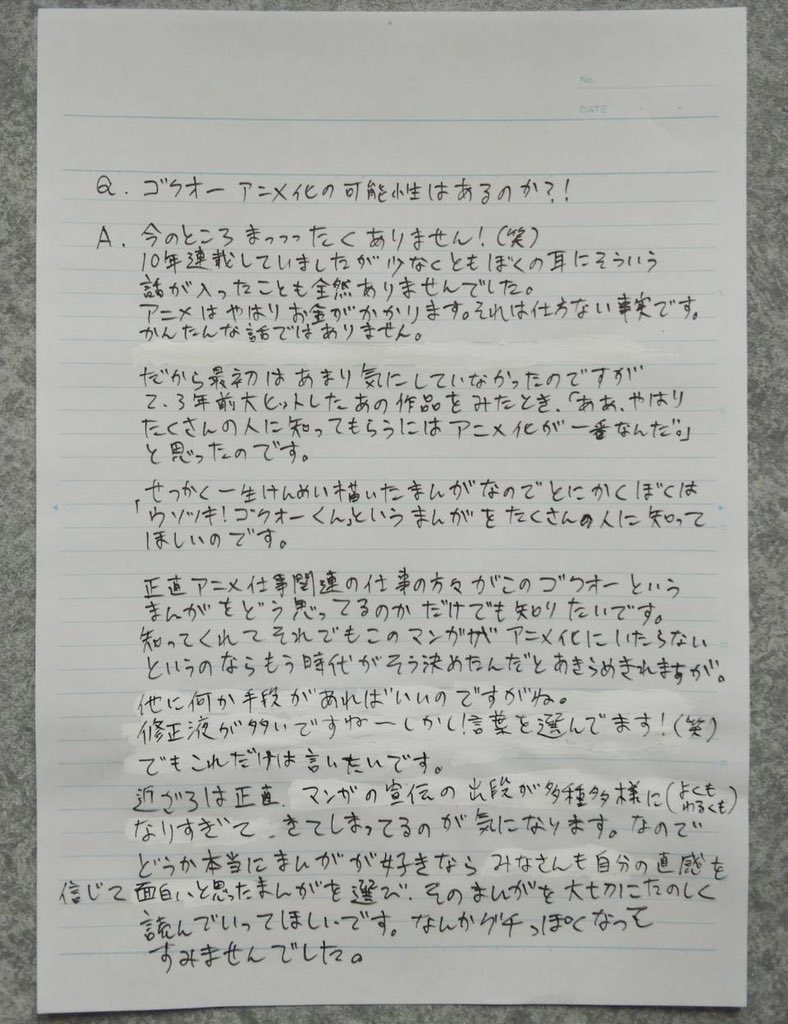 No.
DATE
Q. ゴクオー アニメ化の可能性はあるのか?!
A. 今のところ まっっったく ありません!(笑)
10年連載していましたが少なくともぼくの耳にそういう
話が入ったことも全然ありませんでした。
アニメはやはりお金がかかります。それは仕方ない事実です。
かんたんな話ではありません。
だから最初はあまり気にしていなかったのですが
2、3年前大ヒットしたあの作品をみたとき、「ああ、やはり
たくさんの人に知ってもらうにはアニメ化が一番なんだ。」
と思ったのです。
せっかく一生けんめい描いたまんがなのでとにかくぼくは
「ウソツキ!ゴクオーくん」というまんがをたくさんの人に知って
ほしいのです。
正直アニメ仕事関連の仕事の方々がこのゴクオーという
まんがをどう思ってるのかだけでも知りたいです。
知ってくれてそれでもこのマンガが アニメ化にいたらない
というのならもう時代がそう決めたんだとあきらめきれますが。
他に何か手段があればいいのですがね。
修正液が多いですねーしかし!言葉を選んでます!(笑)
でもこれだけは言いたいです。
近ごろは正直、マンガの宣伝の出段が多種多様に(よくもわるくも)
なりすぎて、きてしまってるのが気になります。なので
どうか本当にまんがが好きなら みなさんも自分の直感を
信じて面白いと思ったまんがを選び、そのまんがを大切にたのしく
読んでいってほしいです。なんかグチっぽくなって
すみませんでした。